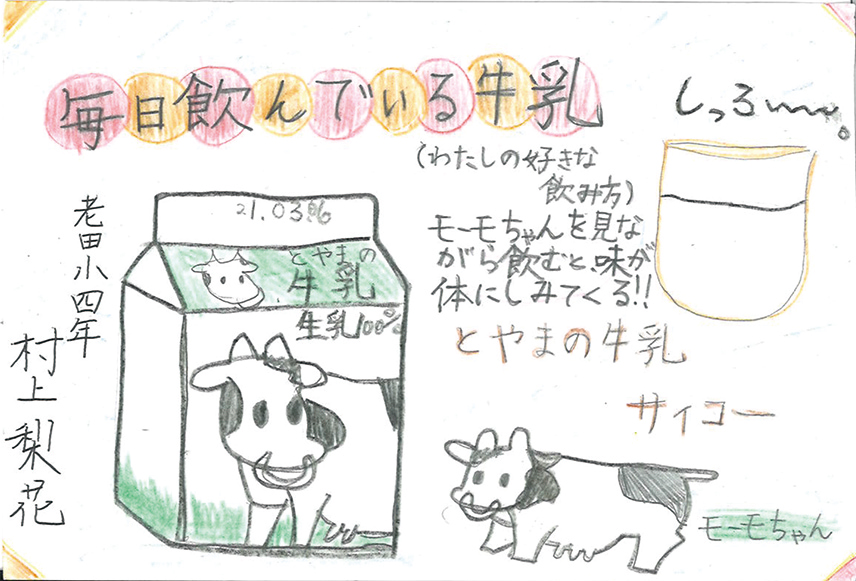 毎日飲んでいる牛乳
しっろ〜〜。
(わたしの好きな
飲み方)
モーモちゃんを見な
がら飲むと、味が
体にしみてくる!!
とやまの牛乳
サイコー
モーモちゃん
とやまの
牛乳
生乳100%
老田小四年
村上梨花